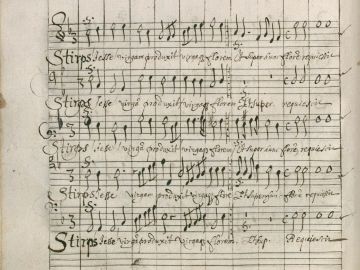 Stirps Jesse virgam produxit virgaqz florem Et super hunc florē requiescit
Stirps Jesse virgā produxit virgaqz florem Et super requiescit
Stirps Jesse virgā produxit virgaqz florem Et super hunc florē requiescit
Stirps Jesse virgam produxit virgaqz florem Et super hunc florē requiescit
Stirps Jesse virgā produxit virgaqz florem Et sup. Requiescit